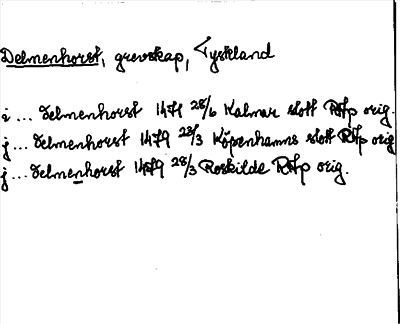 Delmenhorst, grevskap, Tyskland
i ... Delmenhorst 1471 28/6 Kalmar slott RAp orig.
j ... Delmenhorst 1479 23/3 Köpenhamns slott RAp orig
j ... Delmenhorst 1479 28/3 Roskilde RAp orig.